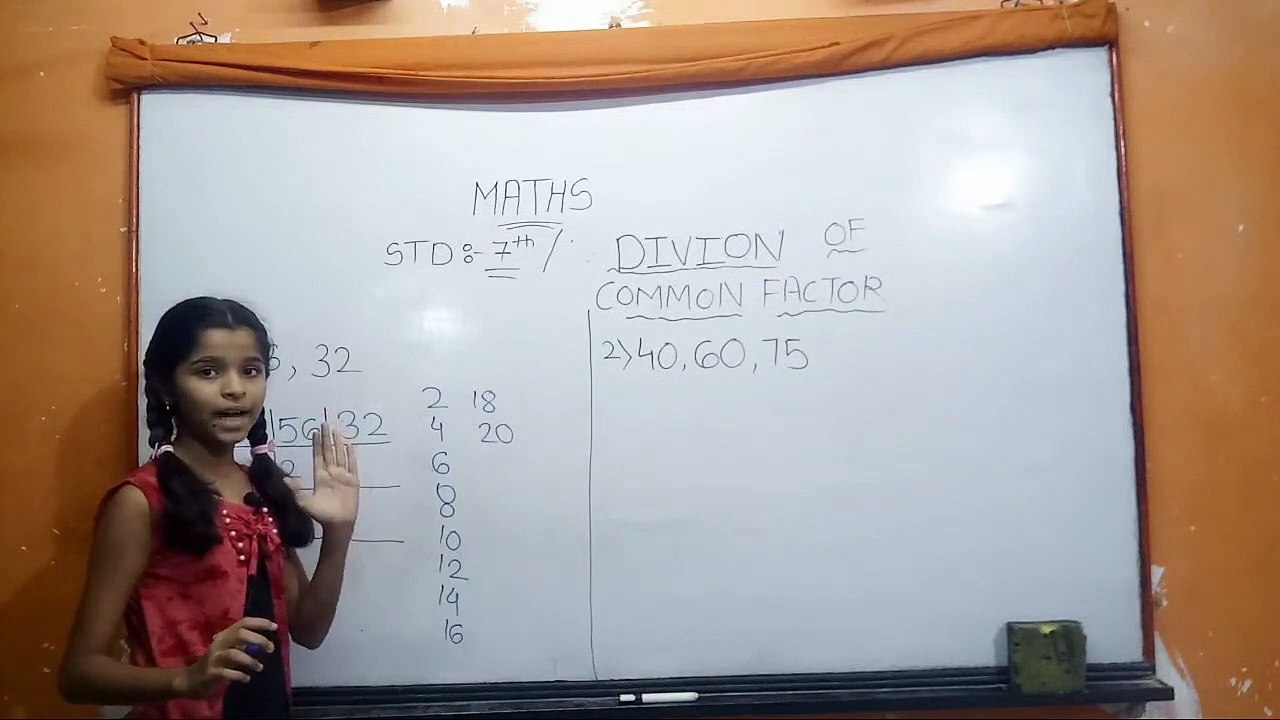 MATHS
STD :- 7th /
DIVION OF
COMMON FACTOR
, 32
56 32
2
2 18
4 20
6
8
10
12
14
16
2) 40, 60, 75